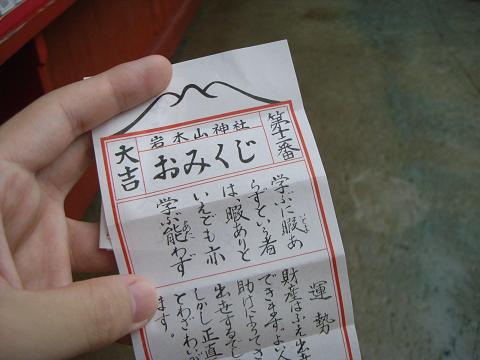 第十一番
岩木山神社
おみくじ
大吉
学ぶに暇あ
らずという者
は、暇ありと
いえども亦
学ぶ能わず
運勢
財産はふえ出
できます。よい人
助けによってき
出世するでし
しかし正直
とわざわい
ます。